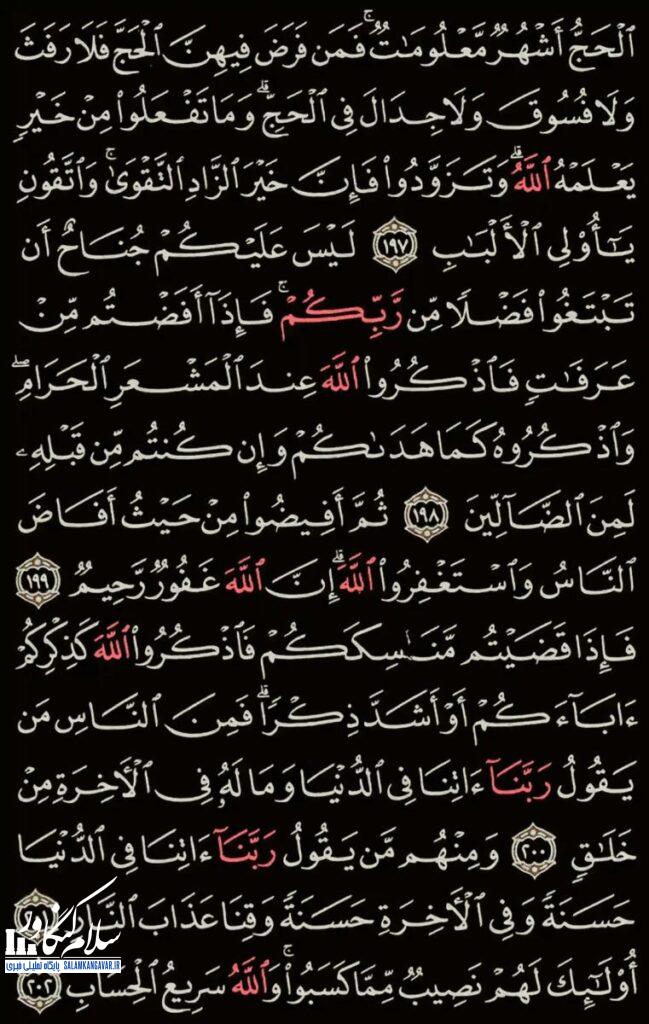 ٱلْحَجُّ أَشْهُرٌ مَّعْلُومَٰتٌ ۚ فَمَن فَرَضَ فِيهِنَّ ٱلْحَجَّ فَلَا رَفَثَ
وَلَا فُسُوقَ وَلَا جِدَالَ فِى ٱلْحَجِّ ۗ وَمَا تَفْعَلُوا۟ مِنْ خَيْرٍ
يَعْلَمْهُ ٱللَّهُ ۗ وَتَزَوَّدُوا۟ فَإِنَّ خَيْرَ ٱلزَّادِ ٱلتَّقْوَىٰ ۚ وَٱتَّقُونِ
يَٰٓأُو۟لِى ٱلْأَلْبَٰبِ ١٩٧ لَيْسَ عَلَيْكُمْ جُنَاحٌ أَن
تَبْتَغُوا۟ فَضْلًا مِّن رَّبِّكُمْ ۚ فَإِذَآ أَفَضْتُم مِّنْ
عَرَفَٰتٍ فَٱذْكُرُوا۟ ٱللَّهَ عِندَ ٱلْمَشْعَرِ ٱلْحَرَامِ ۖ
وَٱذْكُرُوهُ كَمَا هَدَىٰكُمْ وَإِن كُنتُم مِّن قَبْلِهِۦ
لَمِنَ ٱلضَّآلِّينَ ١٩٨ ثُمَّ أَفِيضُوا۟ مِنْ حَيْثُ أَفَاضَ
ٱلنَّاسُ وَٱسْتَغْفِرُوا۟ ٱللَّهَ ۚ إِنَّ ٱللَّهَ غَفُورٌ رَّحِيمٌ ١٩٩
فَإِذَا قَضَيْتُم مَّنَٰسِكَكُمْ فَٱذْكُرُوا۟ ٱللَّهَ كَذِكْرِكُمْ
ءَابَآءَكُمْ أَوْ أَشَدَّ ذِكْرًا ۗ فَمِنَ ٱلنَّاسِ مَن
يَقُولُ رَبَّنَآ ءَاتِنَا فِى ٱلدُّنْيَا وَمَا لَهُۥ فِى ٱلْءَاخِرَةِ مِنْ
خَلَٰقٍ ٢٠٠ وَمِنْهُم مَّن يَقُولُ رَبَّنَآ ءَاتِنَا فِى ٱلدُّنْيَا
حَسَنَةً وَفِى ٱلْءَاخِرَةِ حَسَنَةً وَقِنَا عَذَابَ ٱلنَّارِ
أُو۟لَٰٓئِكَ لَهُمْ نَصِيبٌ مِّمَّا كَسَبُوا۟ ۚ وَٱللَّهُ سَرِيعُ ٱلْحِسَابِ ٢٠٢
سلام کنگاور
پایگاه تحلیلی خبری SALAMKANGAVAR.IR